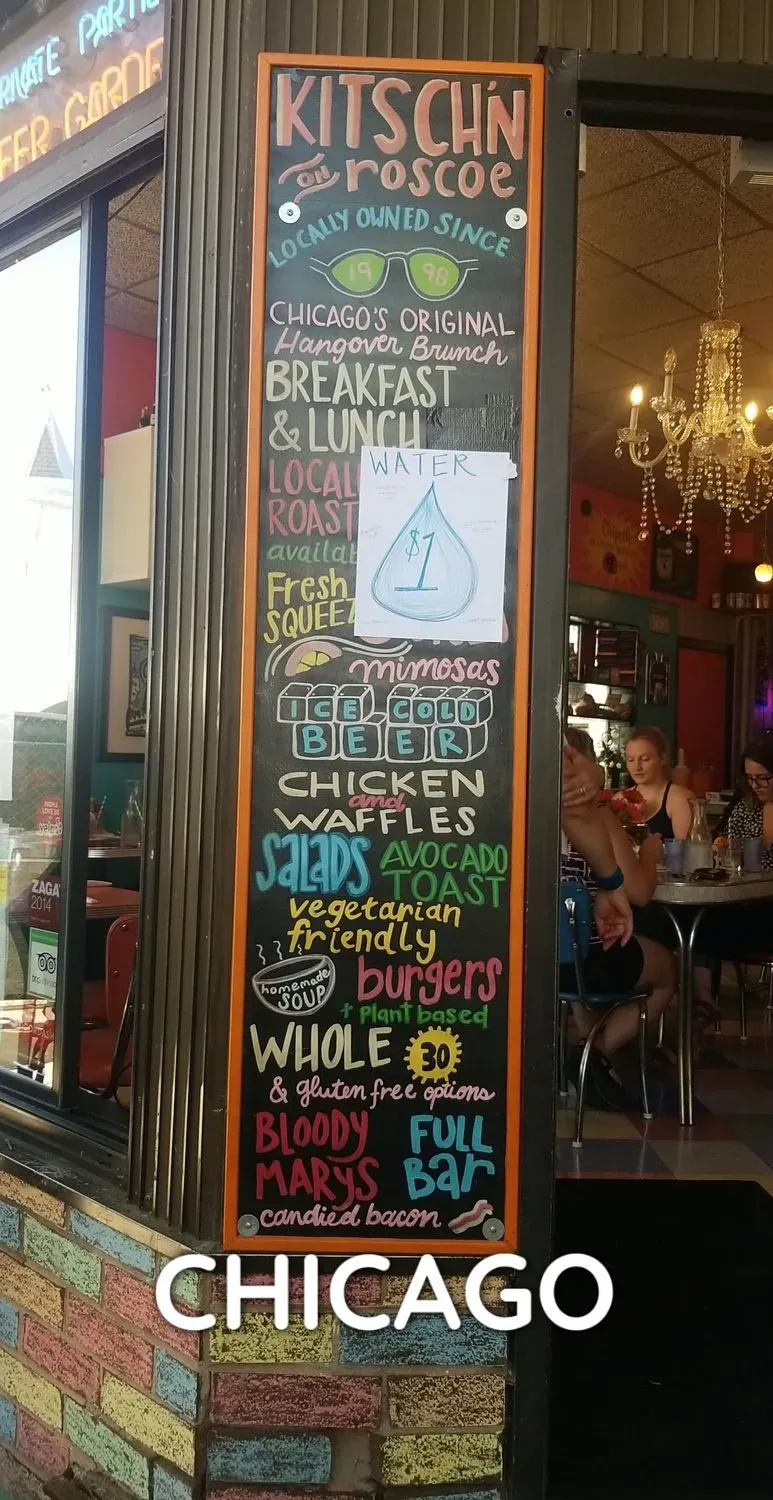 PRIVATE PARTIE
BEER GARDE
KITSCH'N
on roscoe
LOCALLY OWNED SINCE
19 98
CHICAGO'S ORIGINAL
Hangover Brunch
BREAKFAST
& LUNCH
LOCAL
ROAST
availab
Fresh
SQUEEZ
WATER
$1
mimosas
ICE COLD
BEER
CHICKEN
and
WAFFLES
SALADS
AVOCADO
TOAST
vegetarian
friendly
homemade
SOUP
burgers
+ Plant based
WHOLE 30
& gluten free options
BLOODY
MARYS
FULL
Bar
candied bacon
PEOPLE
LOVE US
ZAGA
2014
CHICAGO